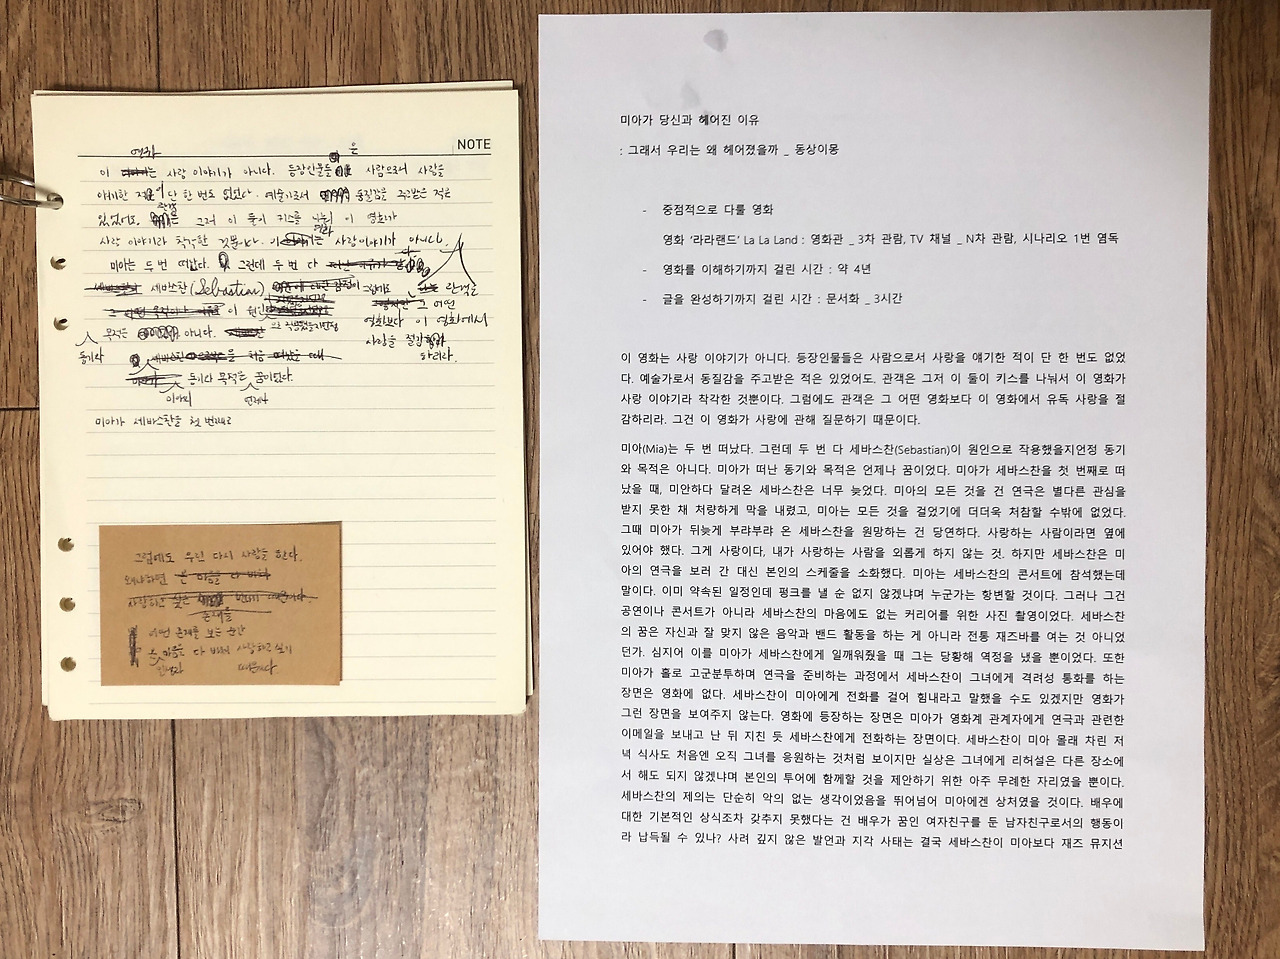 NOTE
영화 은
이 는 사랑 이야기가 아니다. 등장인물들 사람으로서 사랑을
얘기한 적이 단 한 번도 없었다. 예술가로서 동질감을 주고받은 적은
있었어도. 관객은 그저 이 둘이 키스를 나눠서 이 영화가
사랑 이야기라 착각한 것뿐이다. 이 영화는 사랑이야기가 아니다.
미아는 두 번 떠났다. 그런데 두 번 다
세바스찬(Sebastian) 그럼에도 관객은
이 원인 그 어떤
으로 작용했을지언정 영화보다 이 영화에서
목적은 아니다. 사랑을 절감
동기와 하리라.
동기와 목적은 꿈이었다.
미아의 언제나
미아가 세바스찬을 첫 번째로
그럼에도 우린 다시 사랑을 한다.
왜냐하면 온 마음을 다 바쳐
사랑하고 싶은
존재를
어떤 존재를 보는 순간
온 마음을 다 바쳐 사랑하고 싶기
때문이다.
미아가 당신과 헤어진 이유
: 그래서 우리는 왜 헤어졌을까 _ 동상이몽
- 중점적으로 다룰 영화
영화 ‘라라랜드’ La La Land : 영화관 _ 3차 관람, TV 채널 _ N차 관람, 시나리오 1번 염독
- 영화를 이해하기까지 걸린 시간 : 약 4년
- 글을 완성하기까지 걸린 시간 : 문서화 _ 3시간
이 영화는 사랑 이야기가 아니다. 등장인물들은 사람으로서 사랑을 얘기한 적이 단 한 번도 없었
다. 예술가로서 동질감을 주고받은 적은 있었어도. 관객은 그저 이 둘이 키스를 나눠서 이 영화가
사랑 이야기라 착각한 것뿐이다. 그럼에도 관객은 그 어떤 영화보다 이 영화에서 유독 사랑을 절
감하리라. 그건 이 영화가 사랑에 관해 질문하기 때문이다.
미아(Mia)는 두 번 떠났다. 그런데 두 번 다 세바스찬(Sebastian)이 원인으로 작용했을지언정 동기
와 목적은 아니다. 미아가 떠난 동기와 목적은 언제나 꿈이었다. 미아가 세바스찬을 첫 번째로 떠
났을 때, 미안하다 달려온 세바스찬은 너무 늦었다. 미아의 모든 것을 건 연극은 별다른 관심을
받지 못한 채 처량하게 막을 내렸고, 미아는 모든 것을 걸었기에 더더욱 처참할 수밖에 없었다.
그때 미아가 뒤늦게 부랴부랴 온 세바스찬을 원망하는 건 당연하다. 사랑하는 사람이라면 옆에
있어야 했다. 그게 사랑이다, 내가 사랑하는 사람을 외롭게 하지 않는 것. 하지만 세바스찬은 미
아의 연극을 보러 간 대신 본인의 스케줄을 소화했다. 미아는 세바스찬의 콘서트에 참석했는데
말이다. 이미 약속된 일정인데 펑크를 낼 순 없지 않겠냐며 누군가는 항변할 것이다. 그러나 그건
공연이나 콘서트가 아니라 세바스찬의 마음에도 없는 커리어를 위한 사진 촬영이었다. 세바스찬
의 꿈은 자신과 잘 맞지 않은 음악과 밴드 활동을 하는 게 아니라 전통 재즈바를 여는 것 아니었
던가. 심지어 이를 미아가 세바스찬에게 일깨워줬을 때 그는 당황해 역정을 냈을 뿐이었다. 또한
미아가 홀로 고군분투하며 연극을 준비하는 과정에서 세바스찬이 그녀에게 격려성 통화를 하는
장면은 영화에 없다. 세바스찬이 미아에게 전화를 걸어 힘내라고 말했을 수도 있겠지만 영화가
그런 장면을 보여주지 않는다. 영화에 등장하는 장면은 미아가 영화계 관계자에게 연극과 관련한
이메일을 보내고 난 뒤 지친 듯 세바스찬에게 전화하는 장면이다. 세바스찬이 미아 몰래 차린 저
녁 식사도 처음엔 오직 그녀를 응원하는 것처럼 보이지만 실상은 그녀에게 리허설은 다른 장소에
서 해도 되지 않겠냐며 본인의 투어에 함께할 것을 제안하기 위한 아주 무례한 자리였을 뿐이다.
세바스찬의 제의는 단순히 악의 없는 생각이었음을 뛰어넘어 미아에겐 상처였을 것이다. 배우에
대한 기본적인 상식조차 갖추지 못했다는 건 배우가 꿈인 여자친구를 둔 남자친구로서의 행동이
라 납득될 수 있나? 사려 깊지 않은 발언과 지각 사태는 결국 세바스찬이 미아보다 재즈 뮤지션